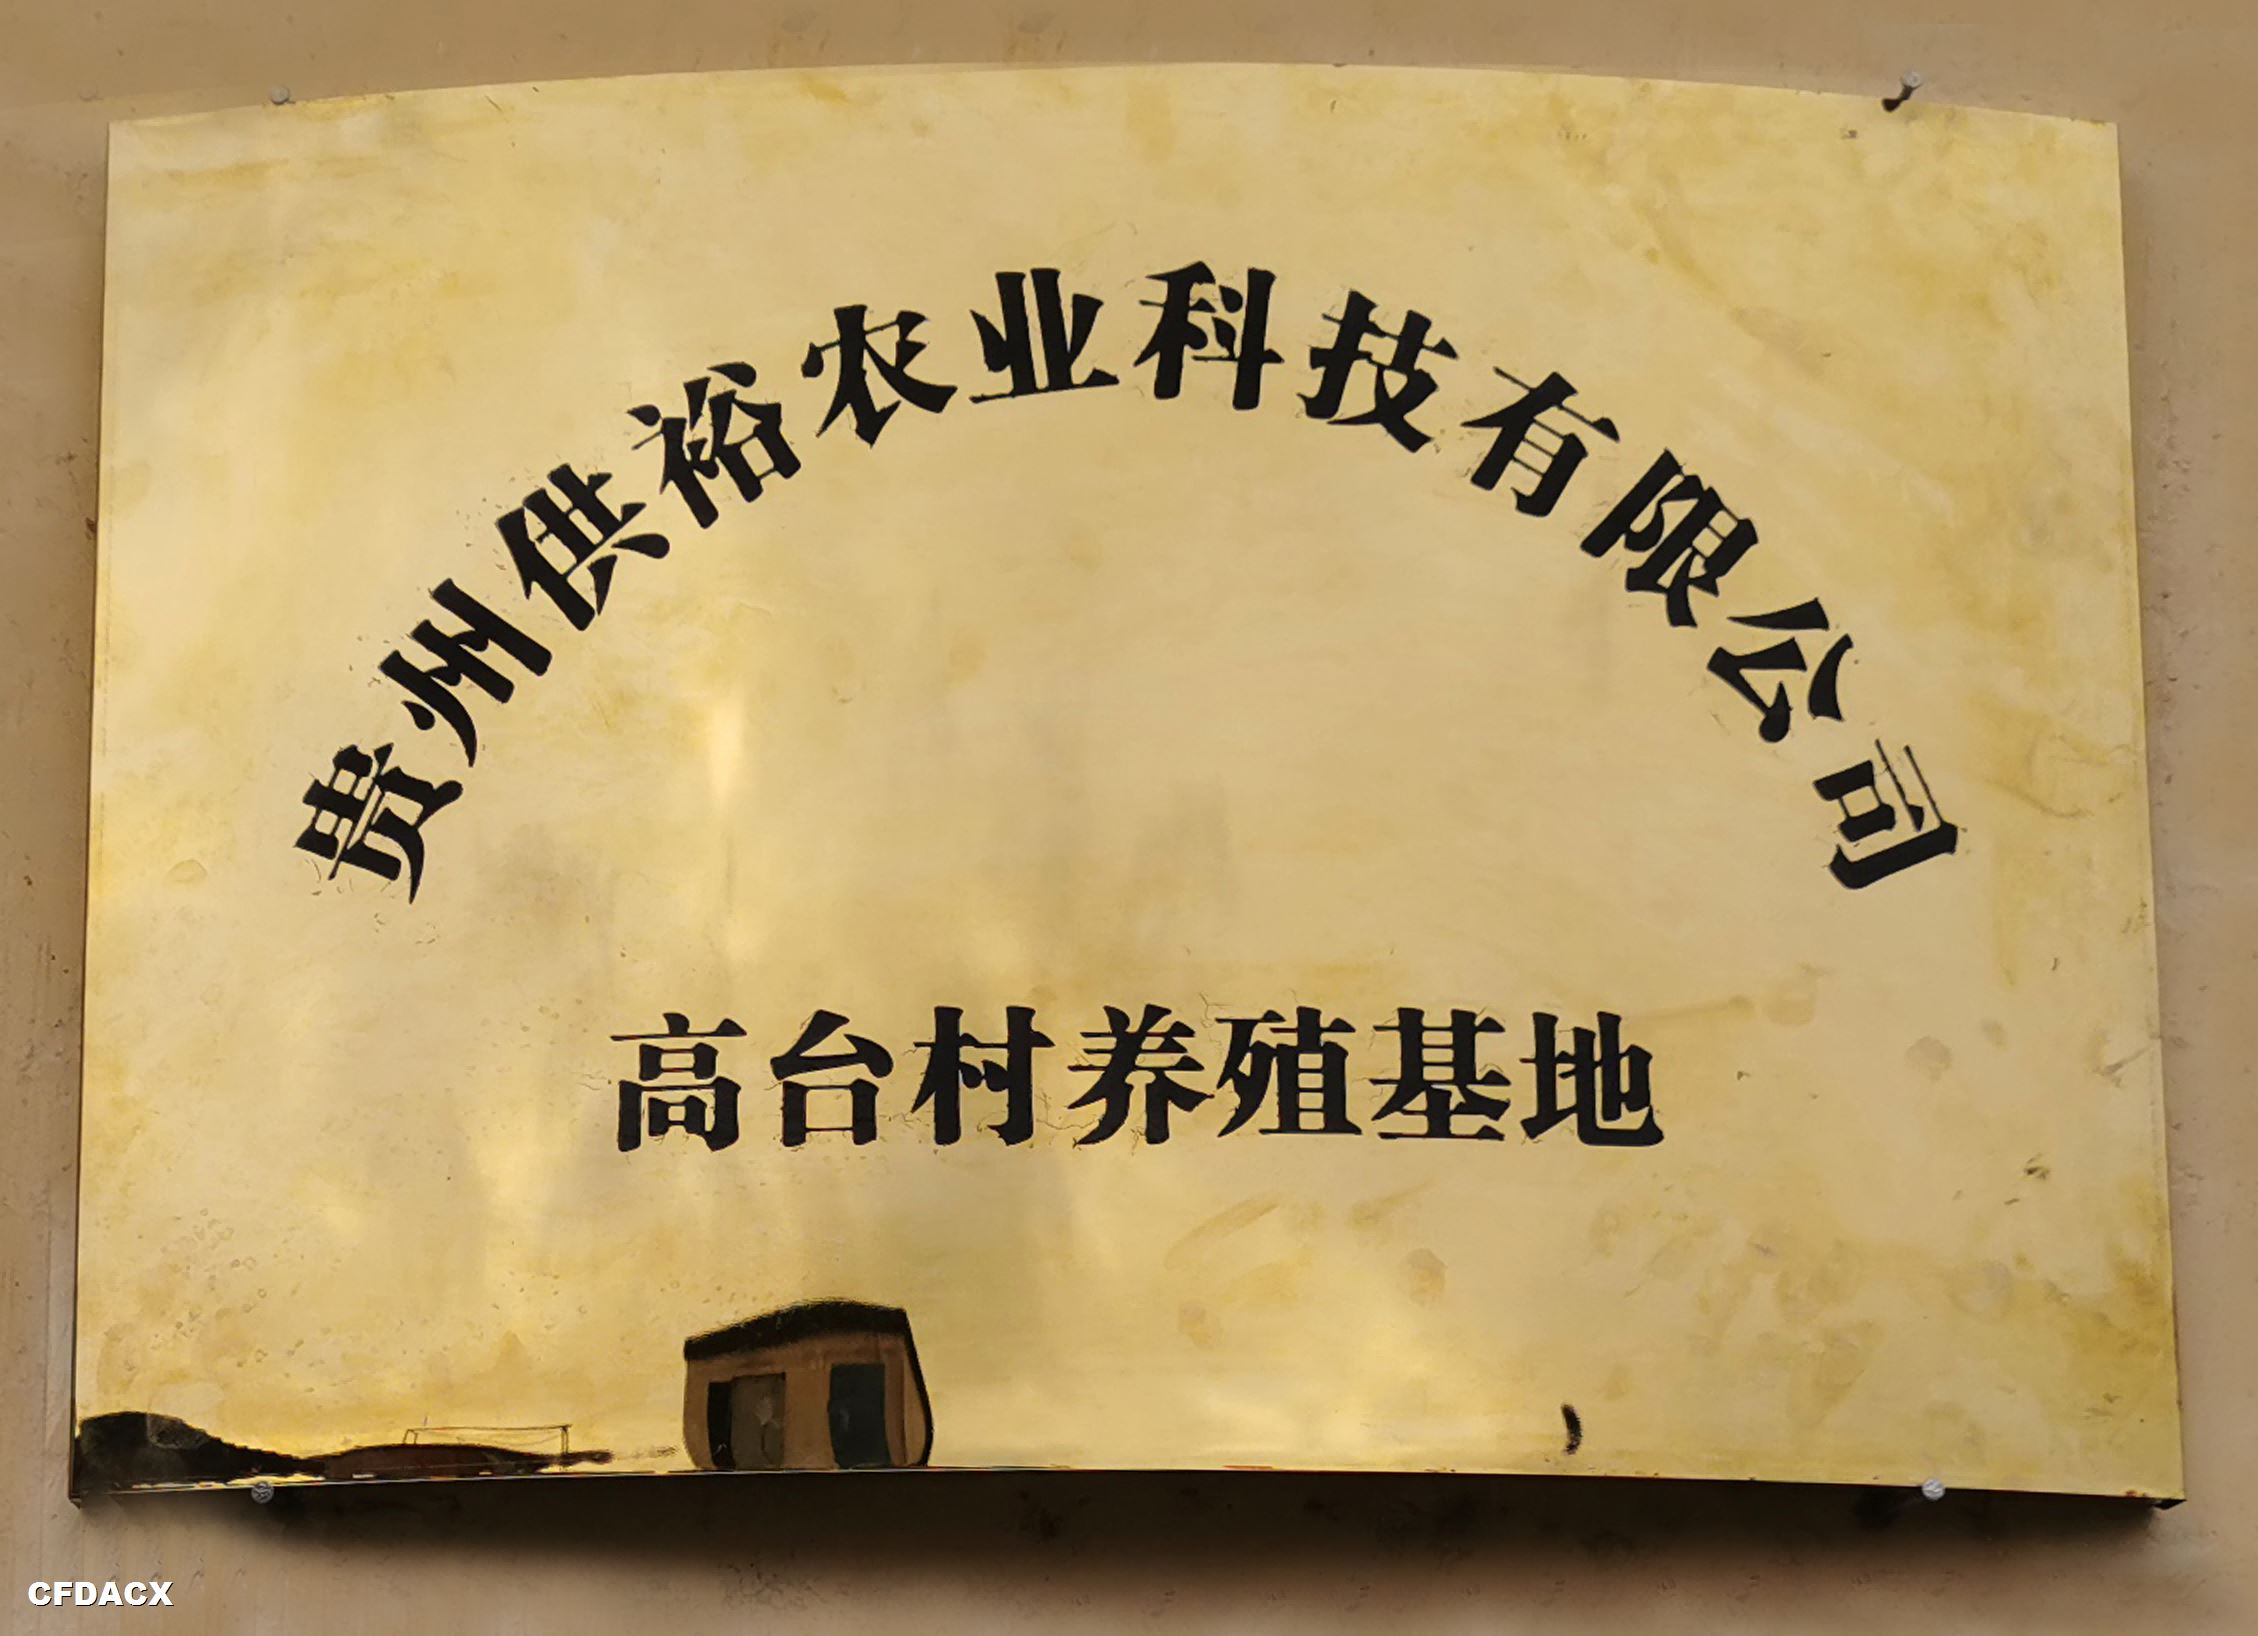 贵州供裕农业科技有限公司
高台村养殖基地
CFDACX